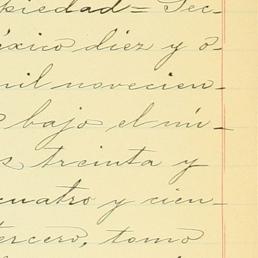 piedad = Sec-
éxico diez y o-
mil novecien-
bajo el nú-
s treinta y
cuatro y cien-
tercero, tomo